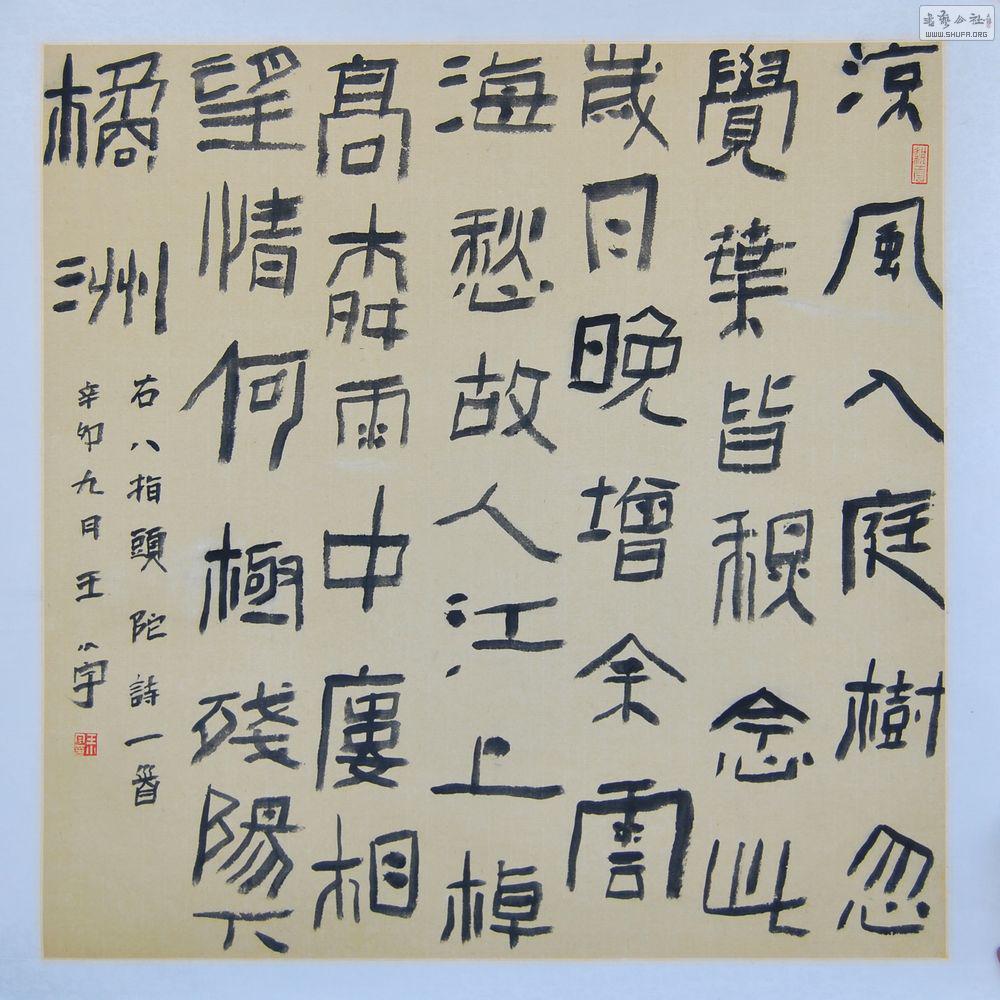 涼風入庭樹忽
覺葉皆穐念此
歲月晚增余雲
海愁故人江上棹
高雨中廔相
望情何極殘陽下
橘洲
右八指頭陀詩一首
辛卯九月王
書藝公社
WWW.SHUFA.ORG